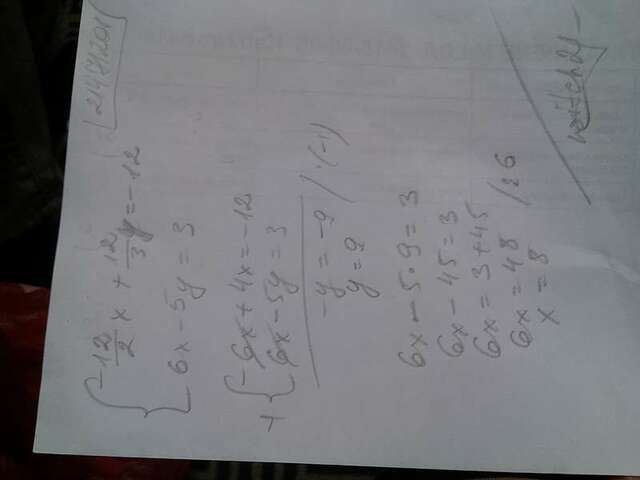 2147201
{ -12/2 x + 12/3 y = -12
6x - 5y = 3
+ { -6x + 4x = -12
6x - 5y = 3
-y = -9 / ·(-1)
y = 9
6x - 5·9 = 3
6x - 45 = 3
6x = 3 + 45
6x = 48 /:6
x = 8